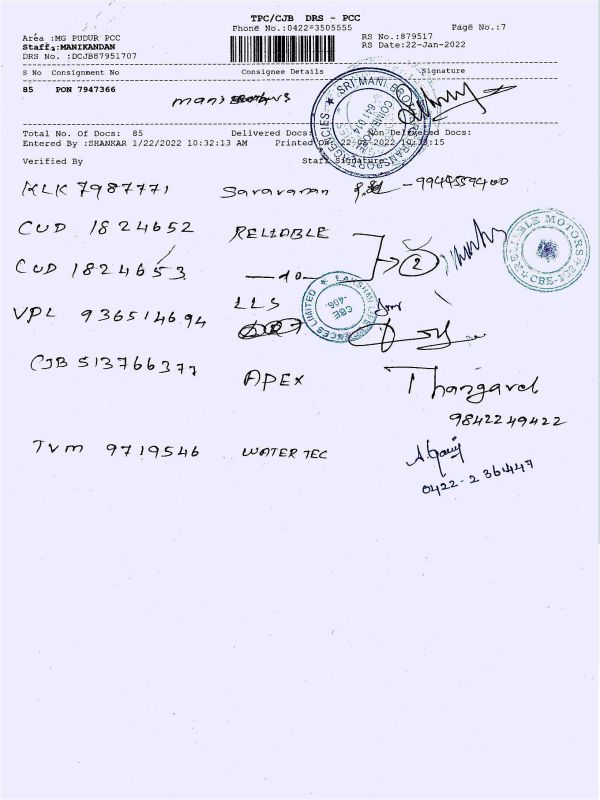 TPC/CJB DRS - PCC
Phone No.:0422-3505555
Page No.:7
Area :MG PUDUR PCC
RS No.:879517
Staff :MANIKANDAN
RS Date:22-Jan-2022
DRS No. :DCJB87951707
S No Consignment No Consignee Details Signature
85 PON 7947366
Total No. Of Docs: 85 Delivered Docs: Non Delivered Docs:
Entered By :SHANKAR 1/22/2022 10:32:13 AM Printed On:
Verified By Staff Signature
KLK 7987771 Saravanan
CUD 1824652 RELIABLE
CUD 1824653 - do - 2
VPL 936514694 LLS
CJB 513766377 APEX Thangavel
9842249422
TVM 9719546 WATER TEC
0422-2361447
SRI MANI BROS
RELIABLE MOTORS
CBE